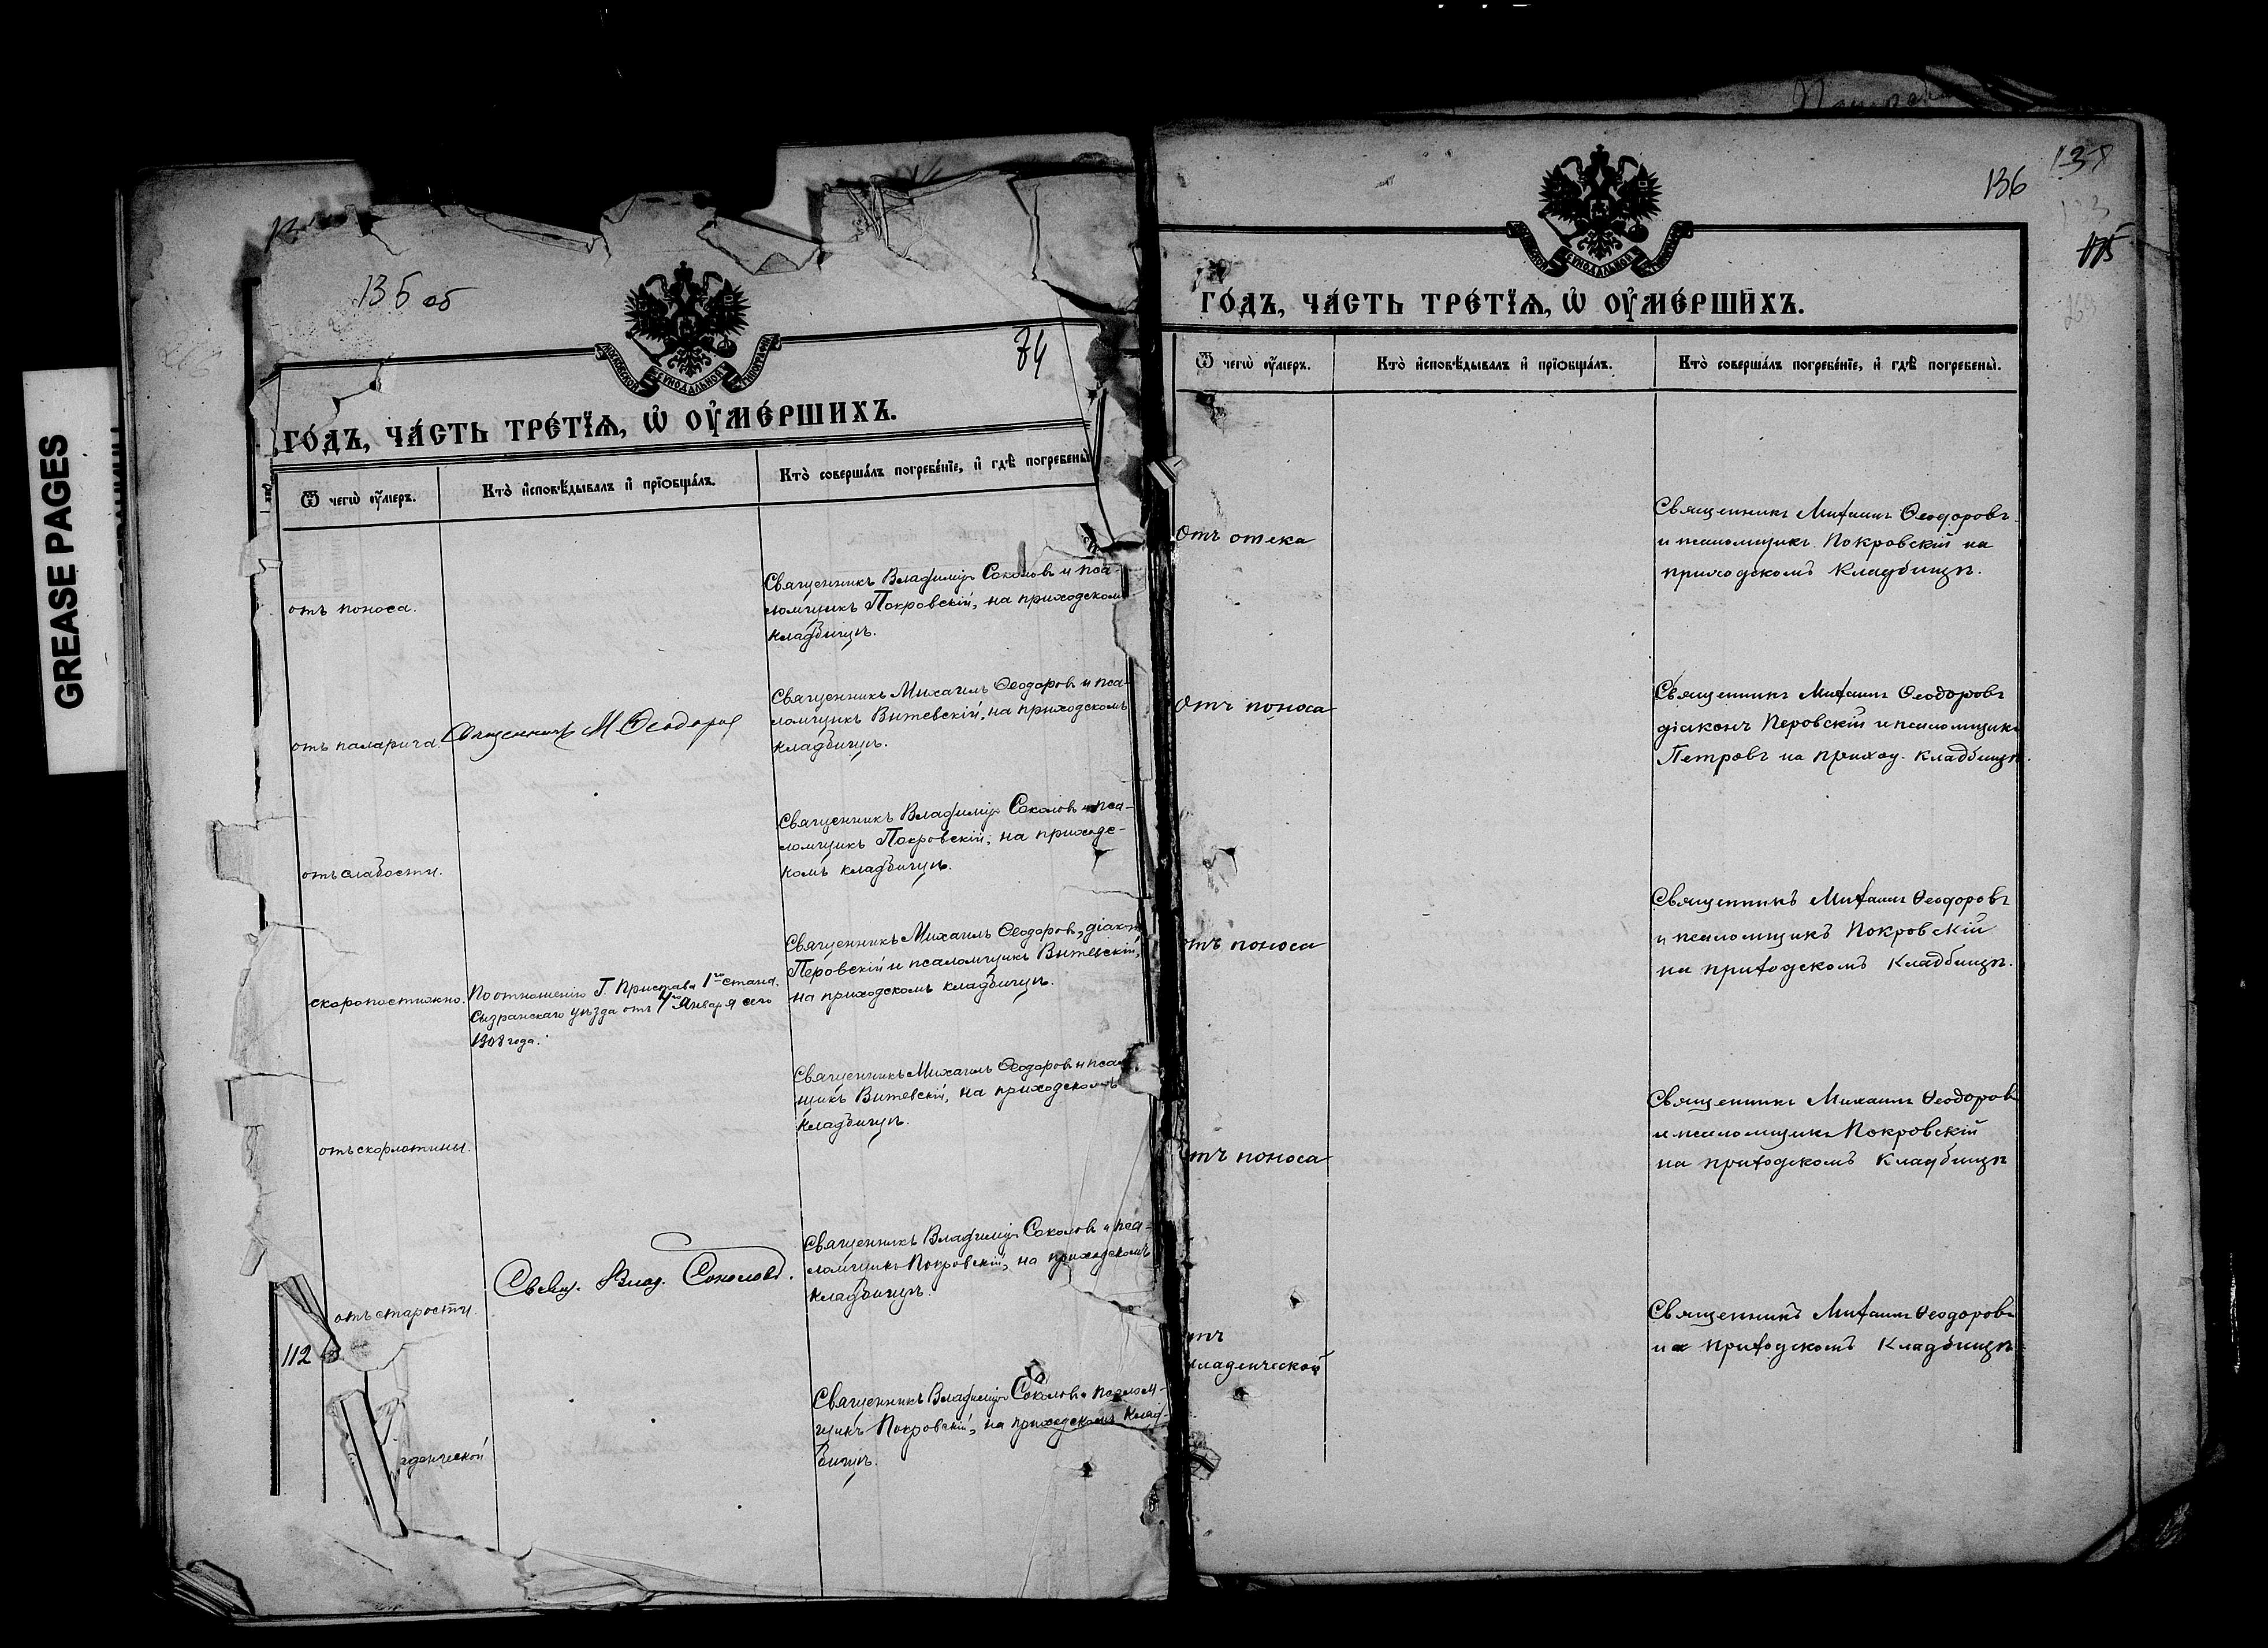 GREASE PAGES
135 об
74
МОСКОВСКОЙ СѴНОДАЛЬНОЙ ТИПОГРАФІИ
ГО́ДЪ, ЧА́СТЬ ТРЕ́ТЇѦ, Ѡ҆ ОУ҆МЕ́РШИХЪ.
Ѿ чегѡ̀ оу҆́меръ.
Кто̀ и҆сповѣ́дывалъ и҆ прїѡбща́лъ.
Кто̀ соверша́лъ погребе́нїе, и҆ гдѣ̀ погребены̀
отъ поноса.
Священникъ Владиміръ Соколовъ и пса-
ломщикъ Покровскій, на приходскомъ
кладбищѣ.
отъ паралича.
Священникъ М. Ѳеодоровъ
Священникъ Михаилъ Ѳеодоровъ и пса-
ломщикъ Витевскій, на приходскомъ
кладбищѣ.
отъ слабости.
Священникъ Владиміръ Соколовъ и пса-
ломщикъ Покровскій, на приходс-
комъ кладбищѣ.
скоропостижно.
По отношенію Г. Пристава 1го стана
Сызранскаго уѣзда отъ 4го Января сего
1908 года.
Священникъ Михаилъ Ѳеодоровъ, діаконъ
Перовскій и псаломщикъ Витевскій,
на приходскомъ кладбищѣ.
отъ скорлатины.
Священникъ Михаилъ Ѳеодоровъ и псалом
щикъ Витевскій, на приходскомъ
кладбищѣ.
отъ старости.
Свящ. Влад. Соколовъ.
Священникъ Владиміръ Соколовъ и пса-
ломщикъ Покровскій, на приходскомъ
кладбищѣ.
112
аденческой
Священникъ Владиміръ Соколовъ и псалом-
щикъ Покровскій, на приходскомъ клад-
бищѣ.
136
138
133
175
МОСКОВСКОЙ СѴНОДАЛЬНОЙ ТИПОГРАФІИ
ГО́ДЪ, ЧА́СТЬ ТРЕ́ТЇѦ, Ѡ҆ ОУ҆МЕ́РШИХЪ.
Ѿ чегѡ̀ оу҆́меръ.
Кто̀ и҆сповѣ́дывалъ и҆ прїѡбща́лъ.
Кто̀ соверша́лъ погребе́нїе, и҆ гдѣ̀ погребены̀.
Отъ отека
Священникъ Михаилъ Ѳеодоровъ
и псаломщикъ Покровскій на
приходскомъ Кладбищѣ.
Отъ поноса
Священникъ Михаилъ Ѳеодоровъ
діаконъ Перовскій и псаломщикъ
Петровъ на приход. кладбищѣ.
отъ поноса
Священникъ Михаилъ Ѳеодоровъ
и псаломщикъ Покровскій
на приходскомъ Кладбищѣ.
отъ поноса
Священникъ Михаилъ Ѳеодоровъ
и псаломщикъ Покровскій
на приходскомъ Кладбищѣ
отъ
младенческой
Священникъ Михаилъ Ѳеодоровъ
на приходскомъ Кладбищѣ